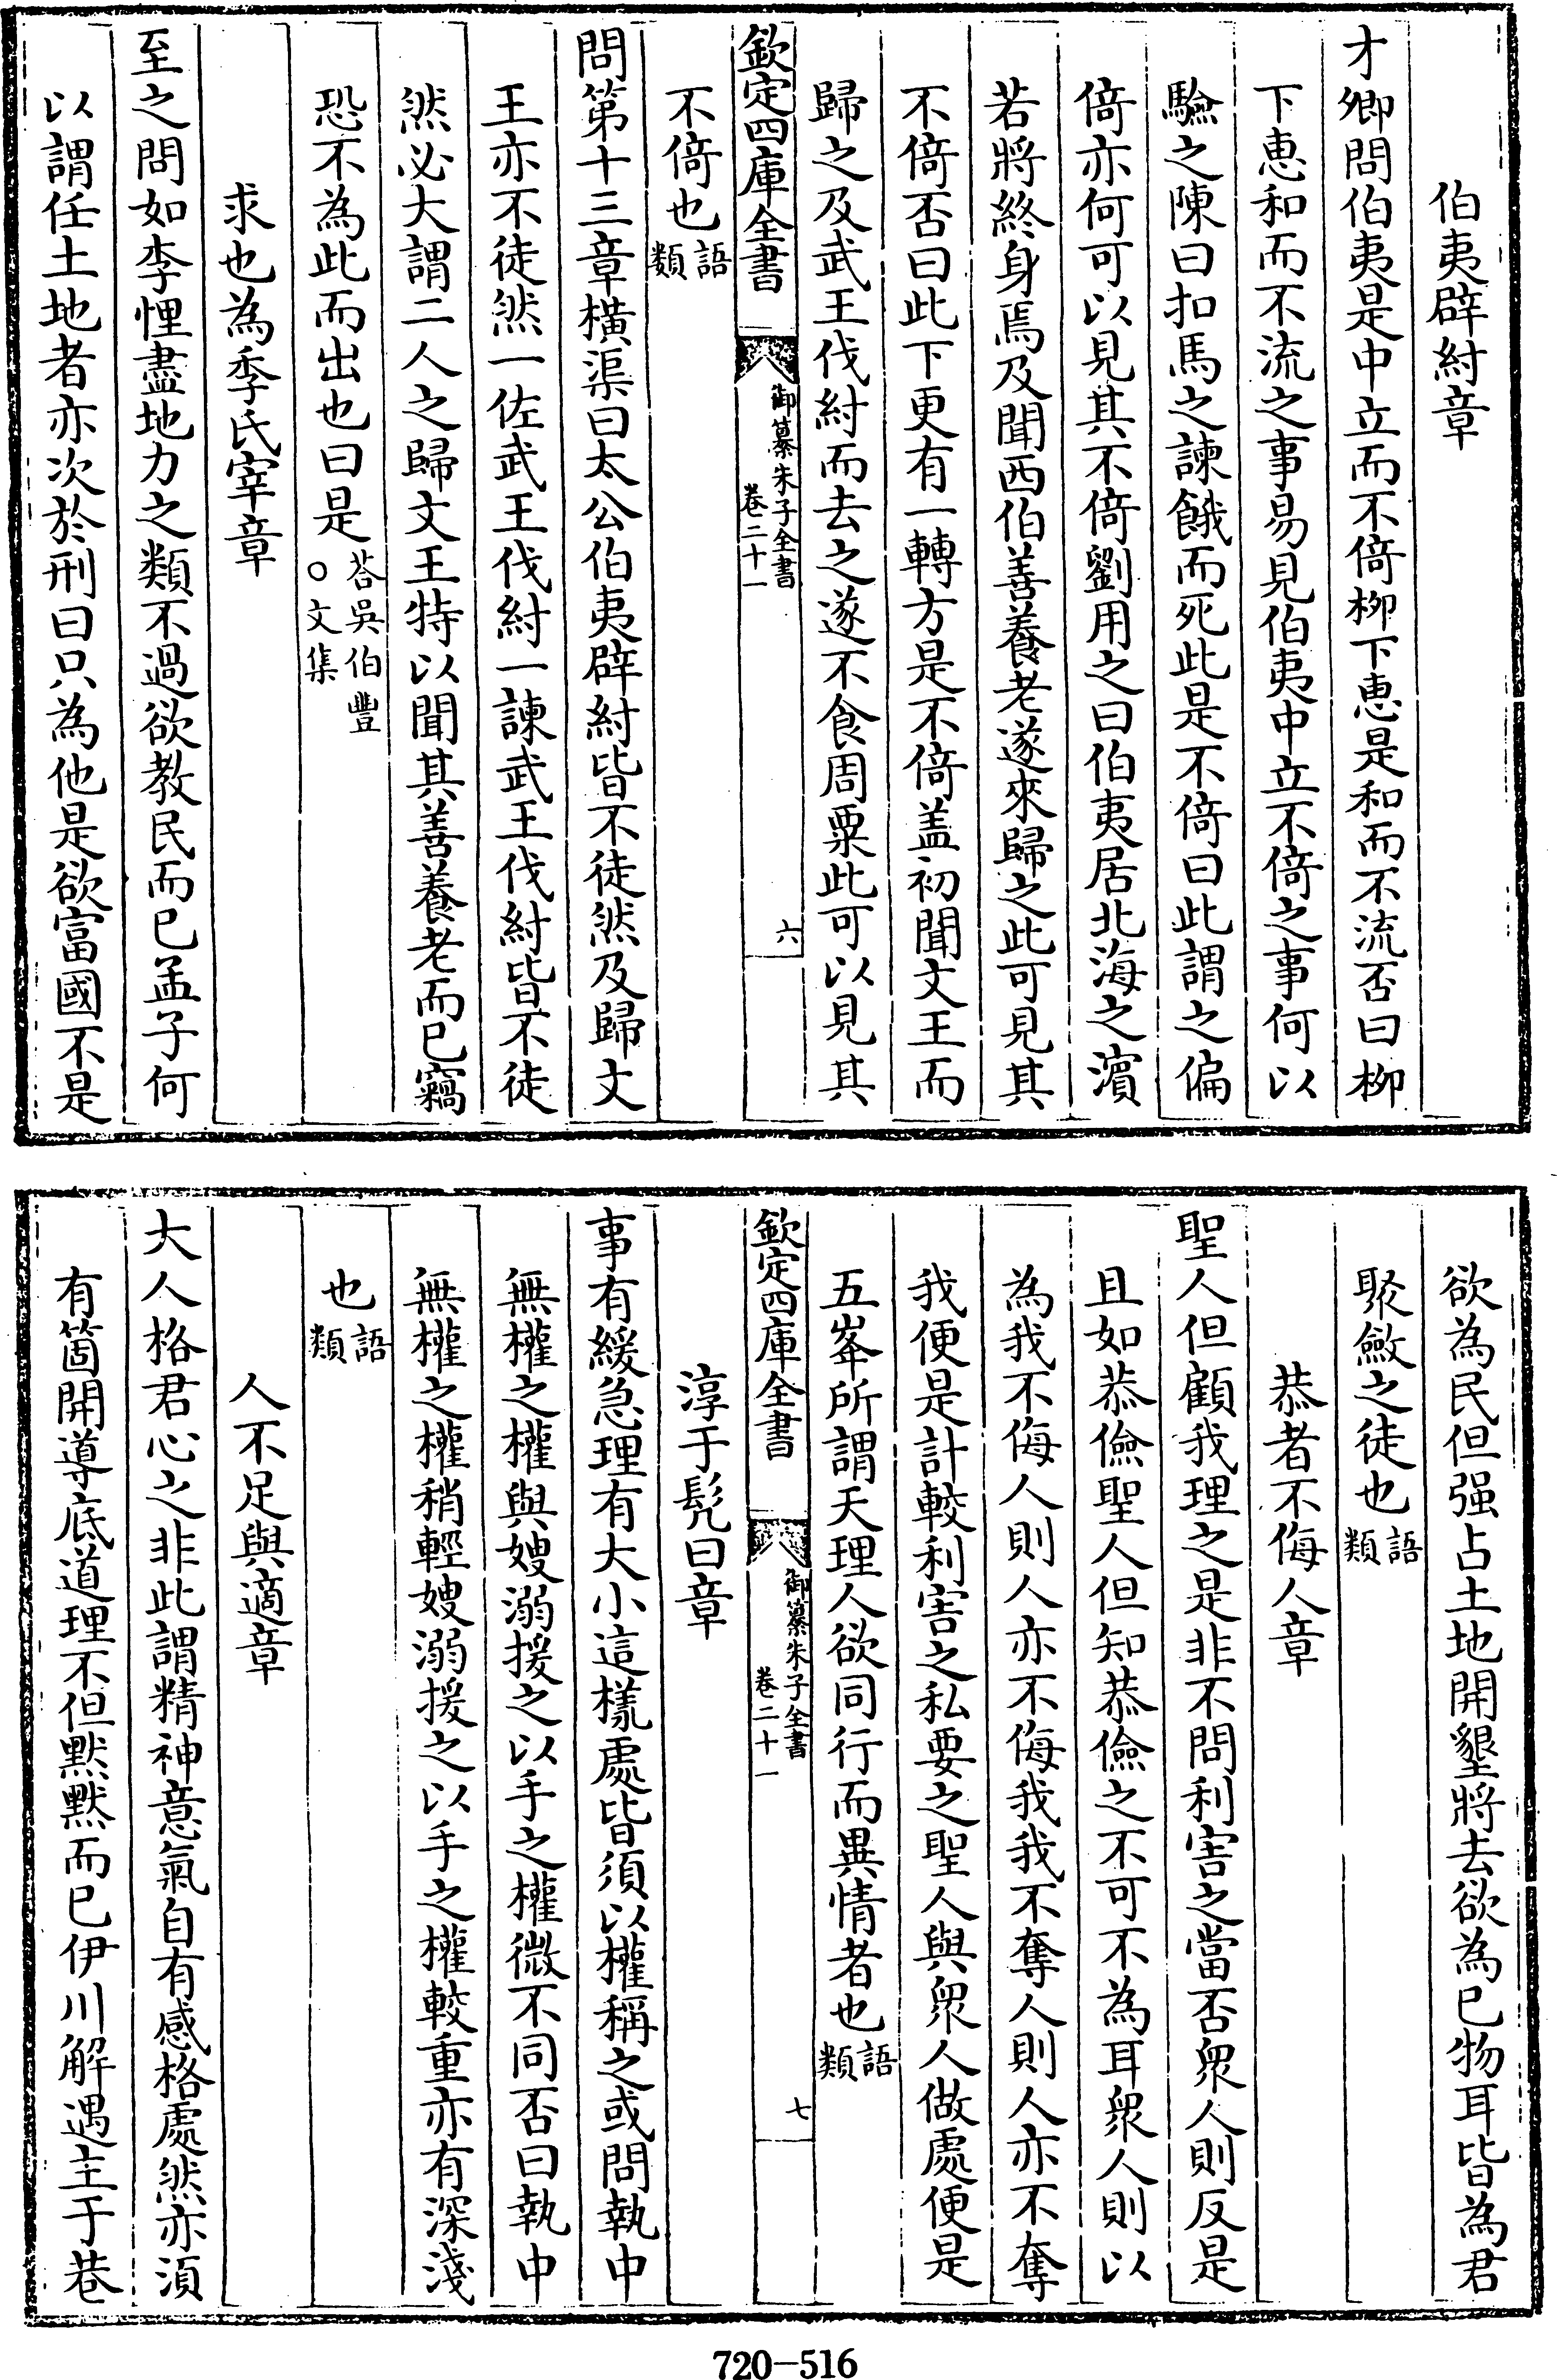 伯夷辟紂章
才卿問伯夷是中立而不倚柳下惠是和而不流否曰柳
下惠和而不流之事易見伯夷中立不倚之事何以
驗之陳曰扣馬之諫餓而死此是不倚曰此謂之偏
倚亦何可以見其不倚劉用之曰伯夷居北海之濱
若將終身焉及聞西伯善養老遂來歸之此可見其
不倚否曰此下更有一轉方是不倚盖初聞文王而
歸之及武王伐紂而去之遂不食周粟此可以見其
欽定四庫全書
御纂朱子全書
卷二十一
六
不倚也語類
問第十三章橫渠曰太公伯夷辟紂皆不徒然及歸文
王亦不徒然一佐武王伐紂一諫武王伐紂皆不徒
然必大謂二人之歸文王特以聞其善養老而已竊
恐不為此而出也曰是荅吳伯豐○文集
求也為季氏宰章
至之問如李悝盡地力之類不過欲教民而已孟子何
以謂任土地者亦次於刑曰只為他是欲富國不是
欲為民但强占土地開墾將去欲為已物耳皆為君
聚斂之徒也語類
恭者不侮人章
聖人但顧我理之是非不問利害之當否衆人則反是
且如恭儉聖人但知恭儉之不可不為耳衆人則以
為我不侮人則人亦不侮我我不奪人則人亦不奪
我便是計較利害之私要之聖人與衆人做處便是
五峯所謂天理人欲同行而異情者也語類
欽定四庫全書
御纂朱子全書
卷二十一
七
淳于髠曰章
事有緩急理有大小這樣處皆須以權稱之或問執中
無權之權與嫂溺援之以手之權微不同否曰執中
無權之權稍輕嫂溺援之以手之權較重亦有深淺
也語類
人不足與適章
大人格君心之非此謂精神意氣自有感格處然亦湏
有箇開導底道理不但黙黙而已伊川解遇主于巷
720-516